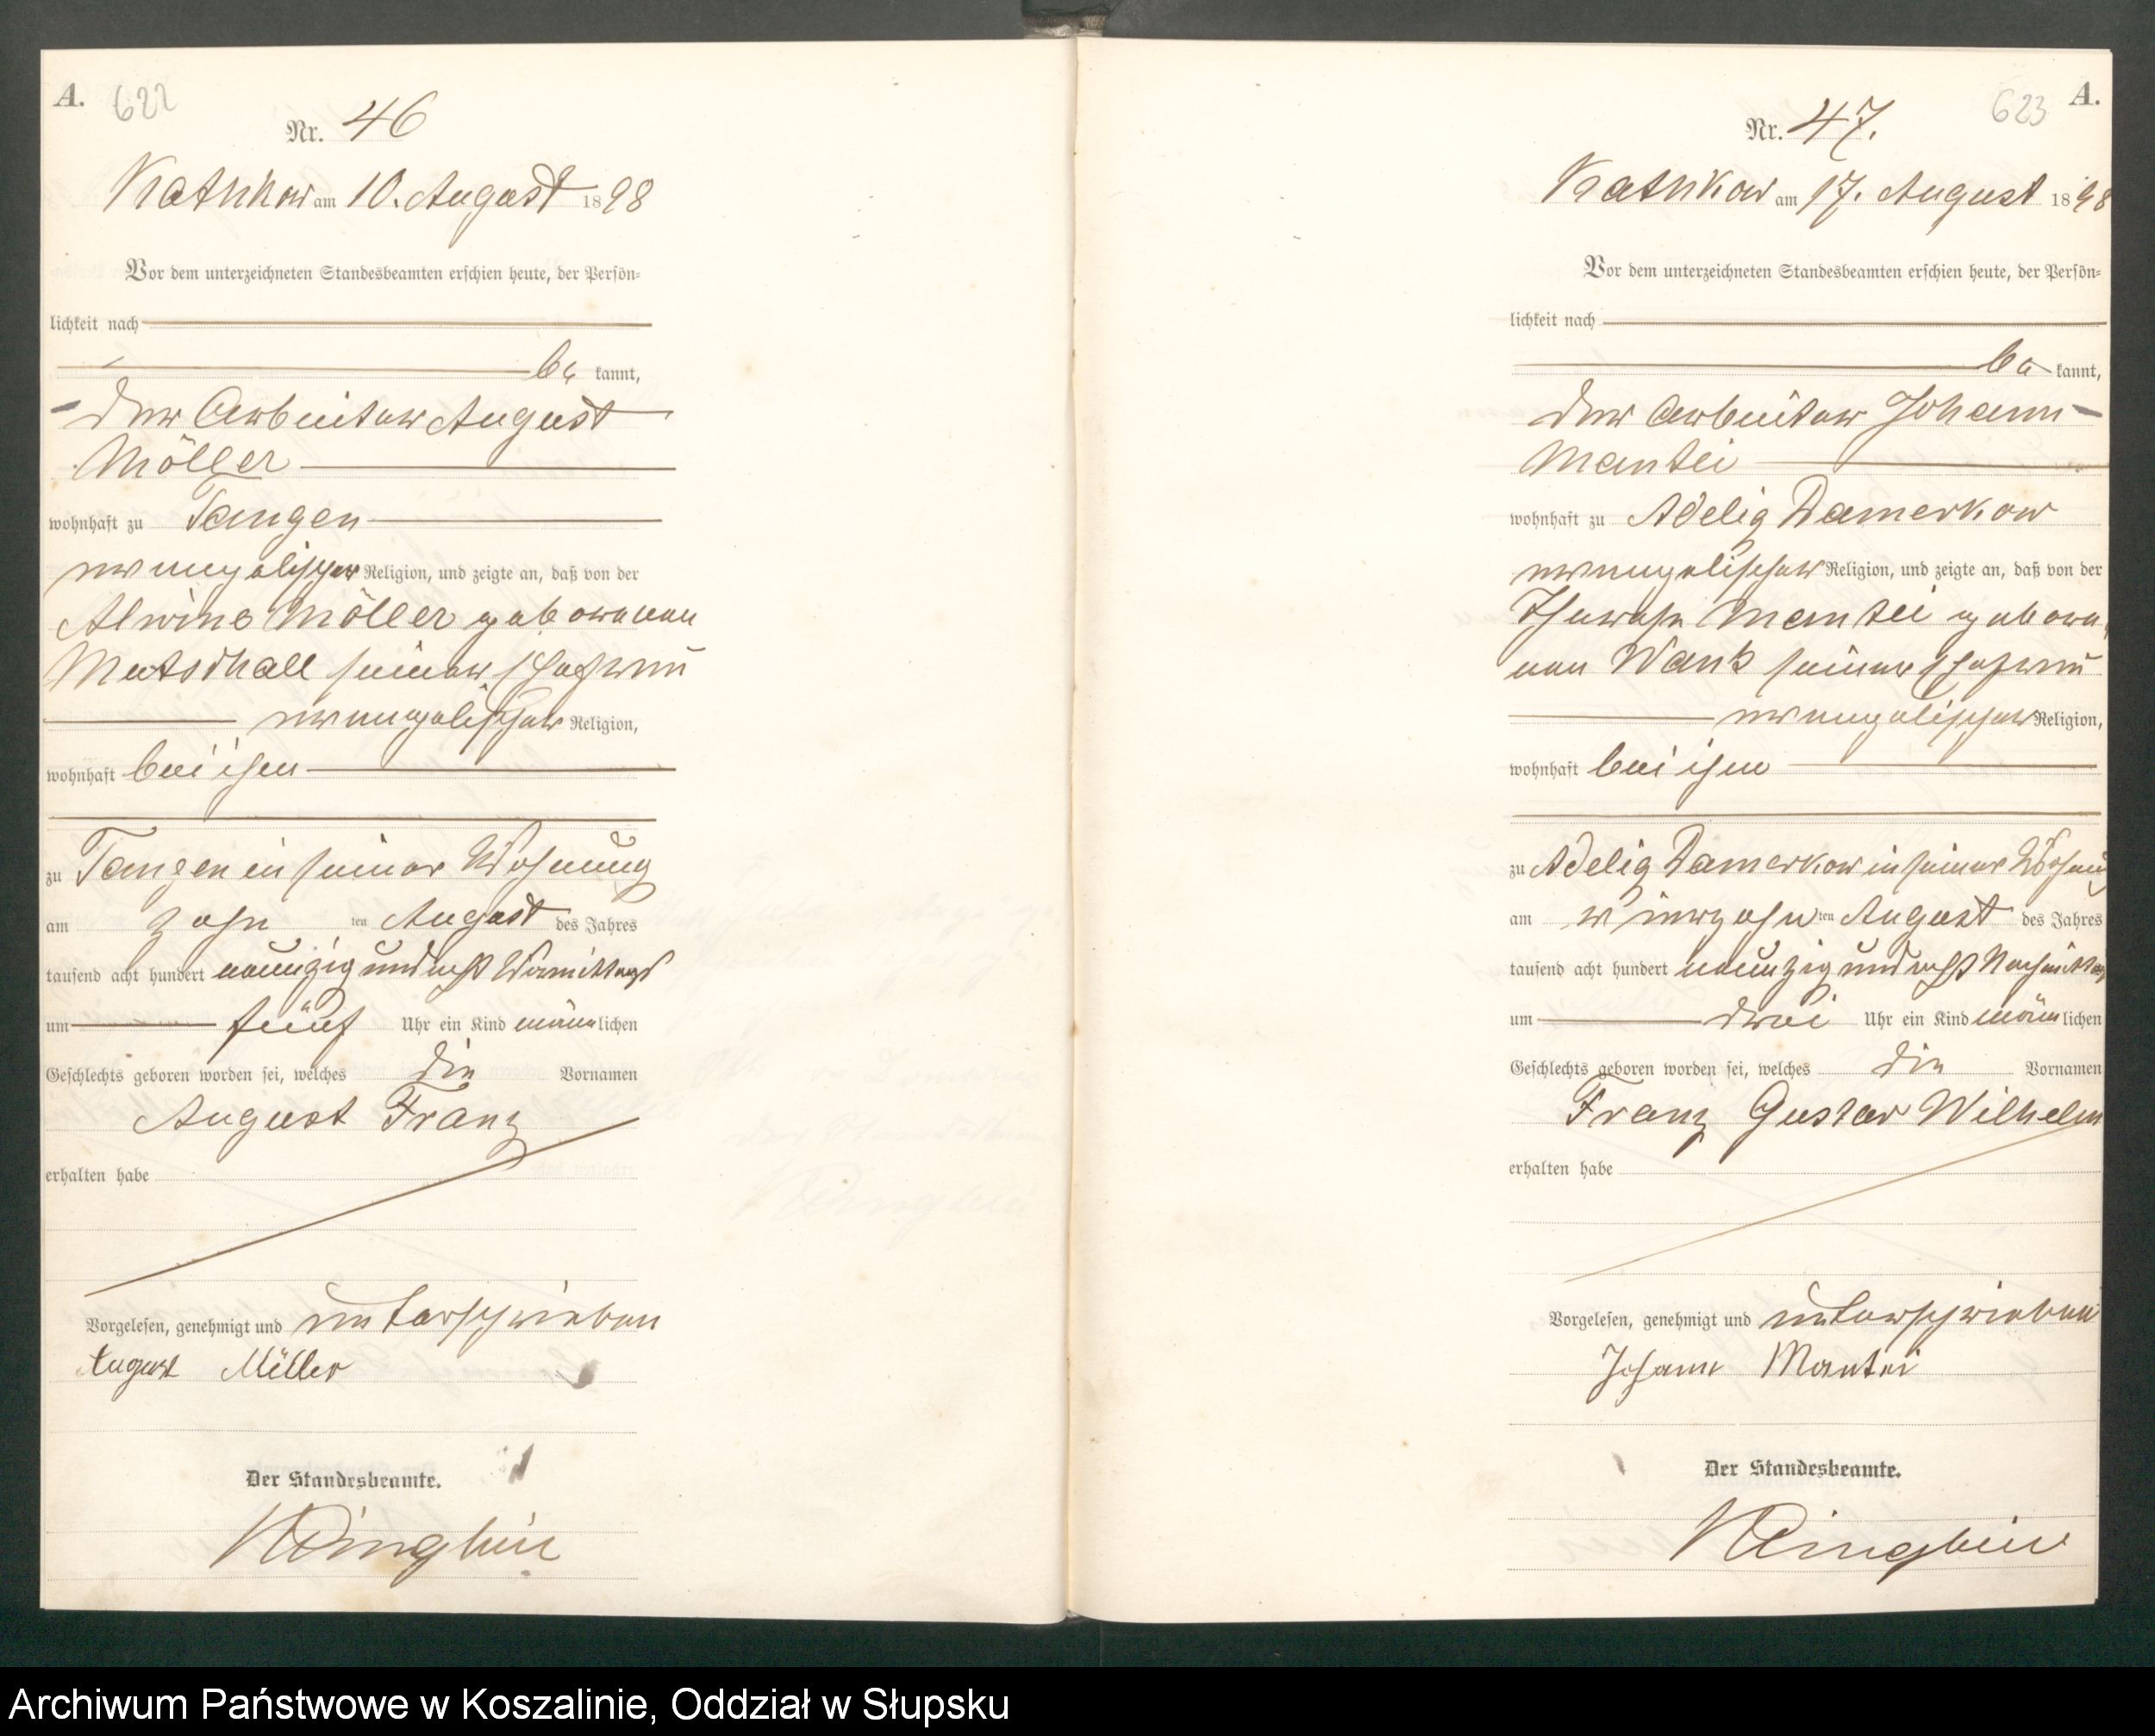 A. 622
Nr. 46
Kathkow am 10. August 1898
Vor dem unterzeichneten Standesbeamten erschien heute, der Persön-
lichkeit nach
be kannt,
der Arbeiter August
Möller
wohnhaft zu Tangen
evangelischer Religion, und zeigte an, daß von der
Alwine Möller geborenen
seiner Ehefrau
evangelischer Religion,
wohnhaft bei ihm
zu Tangen in seiner Wohnung
am zehn ten August des Jahres
tausend acht hundert neunzig und acht Vormittags
um fünf Uhr ein Kind männlichen
Geschlechts geboren worden sei, welches die Vornamen
August Franz
erhalten habe
Vorgelesen, genehmigt und unterschrieben
August Möller
Der Standesbeamte.
623 A.
Nr. 47.
Kathkow am 17. August 1898
Vor dem unterzeichneten Standesbeamten erschien heute, der Persön-
lichkeit nach
be kannt,
der Arbeiter Johann
Mantei
wohnhaft zu Adelig Damerkow
evangelischer Religion, und zeigte an, daß von der
Therese Mantei gebore
nen Wank seiner Ehefrau
evangelischer Religion,
wohnhaft bei ihm
zu Adelig Damerkow in seiner Wohnung
am vierzehn ten August des Jahres
tausend acht hundert neunzig und acht Nachmittags
um drei Uhr ein Kind männlichen
Geschlechts geboren worden sei, welches die Vornamen
Franz Gustav Wilhelm
erhalten habe
Vorgelesen, genehmigt und unterschrieben
Johann Mantei
Der Standesbeamte.
Archiwum Państwowe w Koszalinie, Oddział w Słupsku